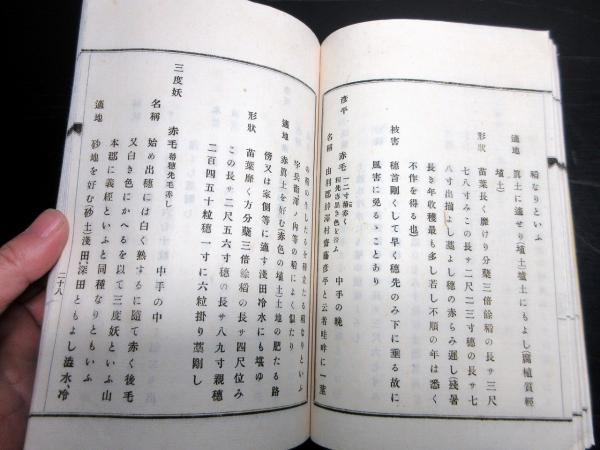 稻なりといふ
適地　眞土に適せり(埴土壚土にもよし(腐植質輕
埴土)
形狀　苗葉長く靡けり分蘖三倍餘稻の長サ三尺
七八寸みこの長サ二尺二三寸穗の長サ七
八寸出揃よし莖よし穗の赤らみ遲し(殘暑
長き年收穫最も多し若し不順の年は悉く
不作を得る也)
被害　穗首剛くして早く穗先のみ下に埀る故に
風害に免るゝことあり
彦平　赤毛　中手の晩
名稱　由利郡鮎澤村齋藤彦平と云者畦畔に一莖
宇兵衛澤ノ内等の稻によく似たり
適地　赤眞土を好む(赤色の埴土)土地の肥たる路
傍又は家側等に適す淺田冷水にも堪ゆ
形狀　苗葉靡く方分蘖三倍餘稻の長サ四尺位み
この長サ二尺五六寸穗の長サ八九寸親穗
二百四五十粒穗一寸に六粒掛り藁剛し
三度妖　赤毛　稀穗先毛赤し　中手の中
名稱　始め出穗には白く熟するに隨て赤く後毛
又白き色にかへるを以て三度妖といふ山
本郡に義經といふと同種なりともいふ
適地　砂地を好む(砂土)淺田、深田ともよし澁水、冷
二十八